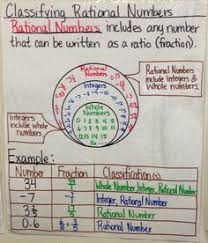 Classifying Rational Numbers
Rational Numbers includes any number
that can be written as a ratio (fraction).
Rational
Numbers
Integers
Whole
Numbers
Integers
include
whole
numbers
Rational Numbers
include Integers &
Whole numbers.
Example:
Number Fraction Classification(s)
34 34/1 Whole Number, Integer, Rational Number
-7 -7/1 Integer, Rational Number
3½ 7/2 Rational Number
0.6 Rational Number